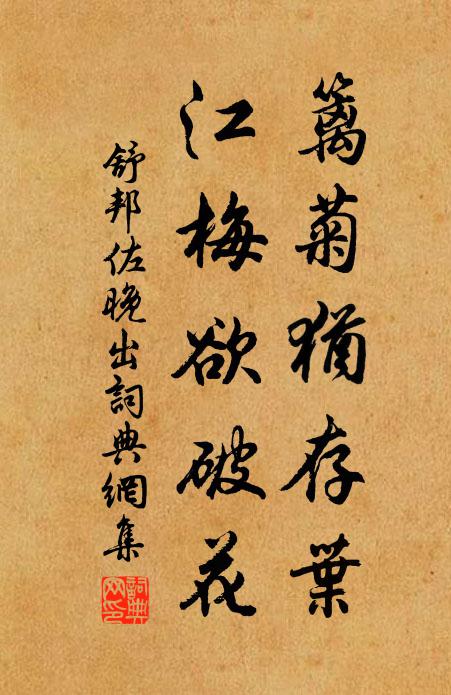 籬菊猶存葉
江梅欲破花
舒邦佐晚出詞典網集
詞典
网印